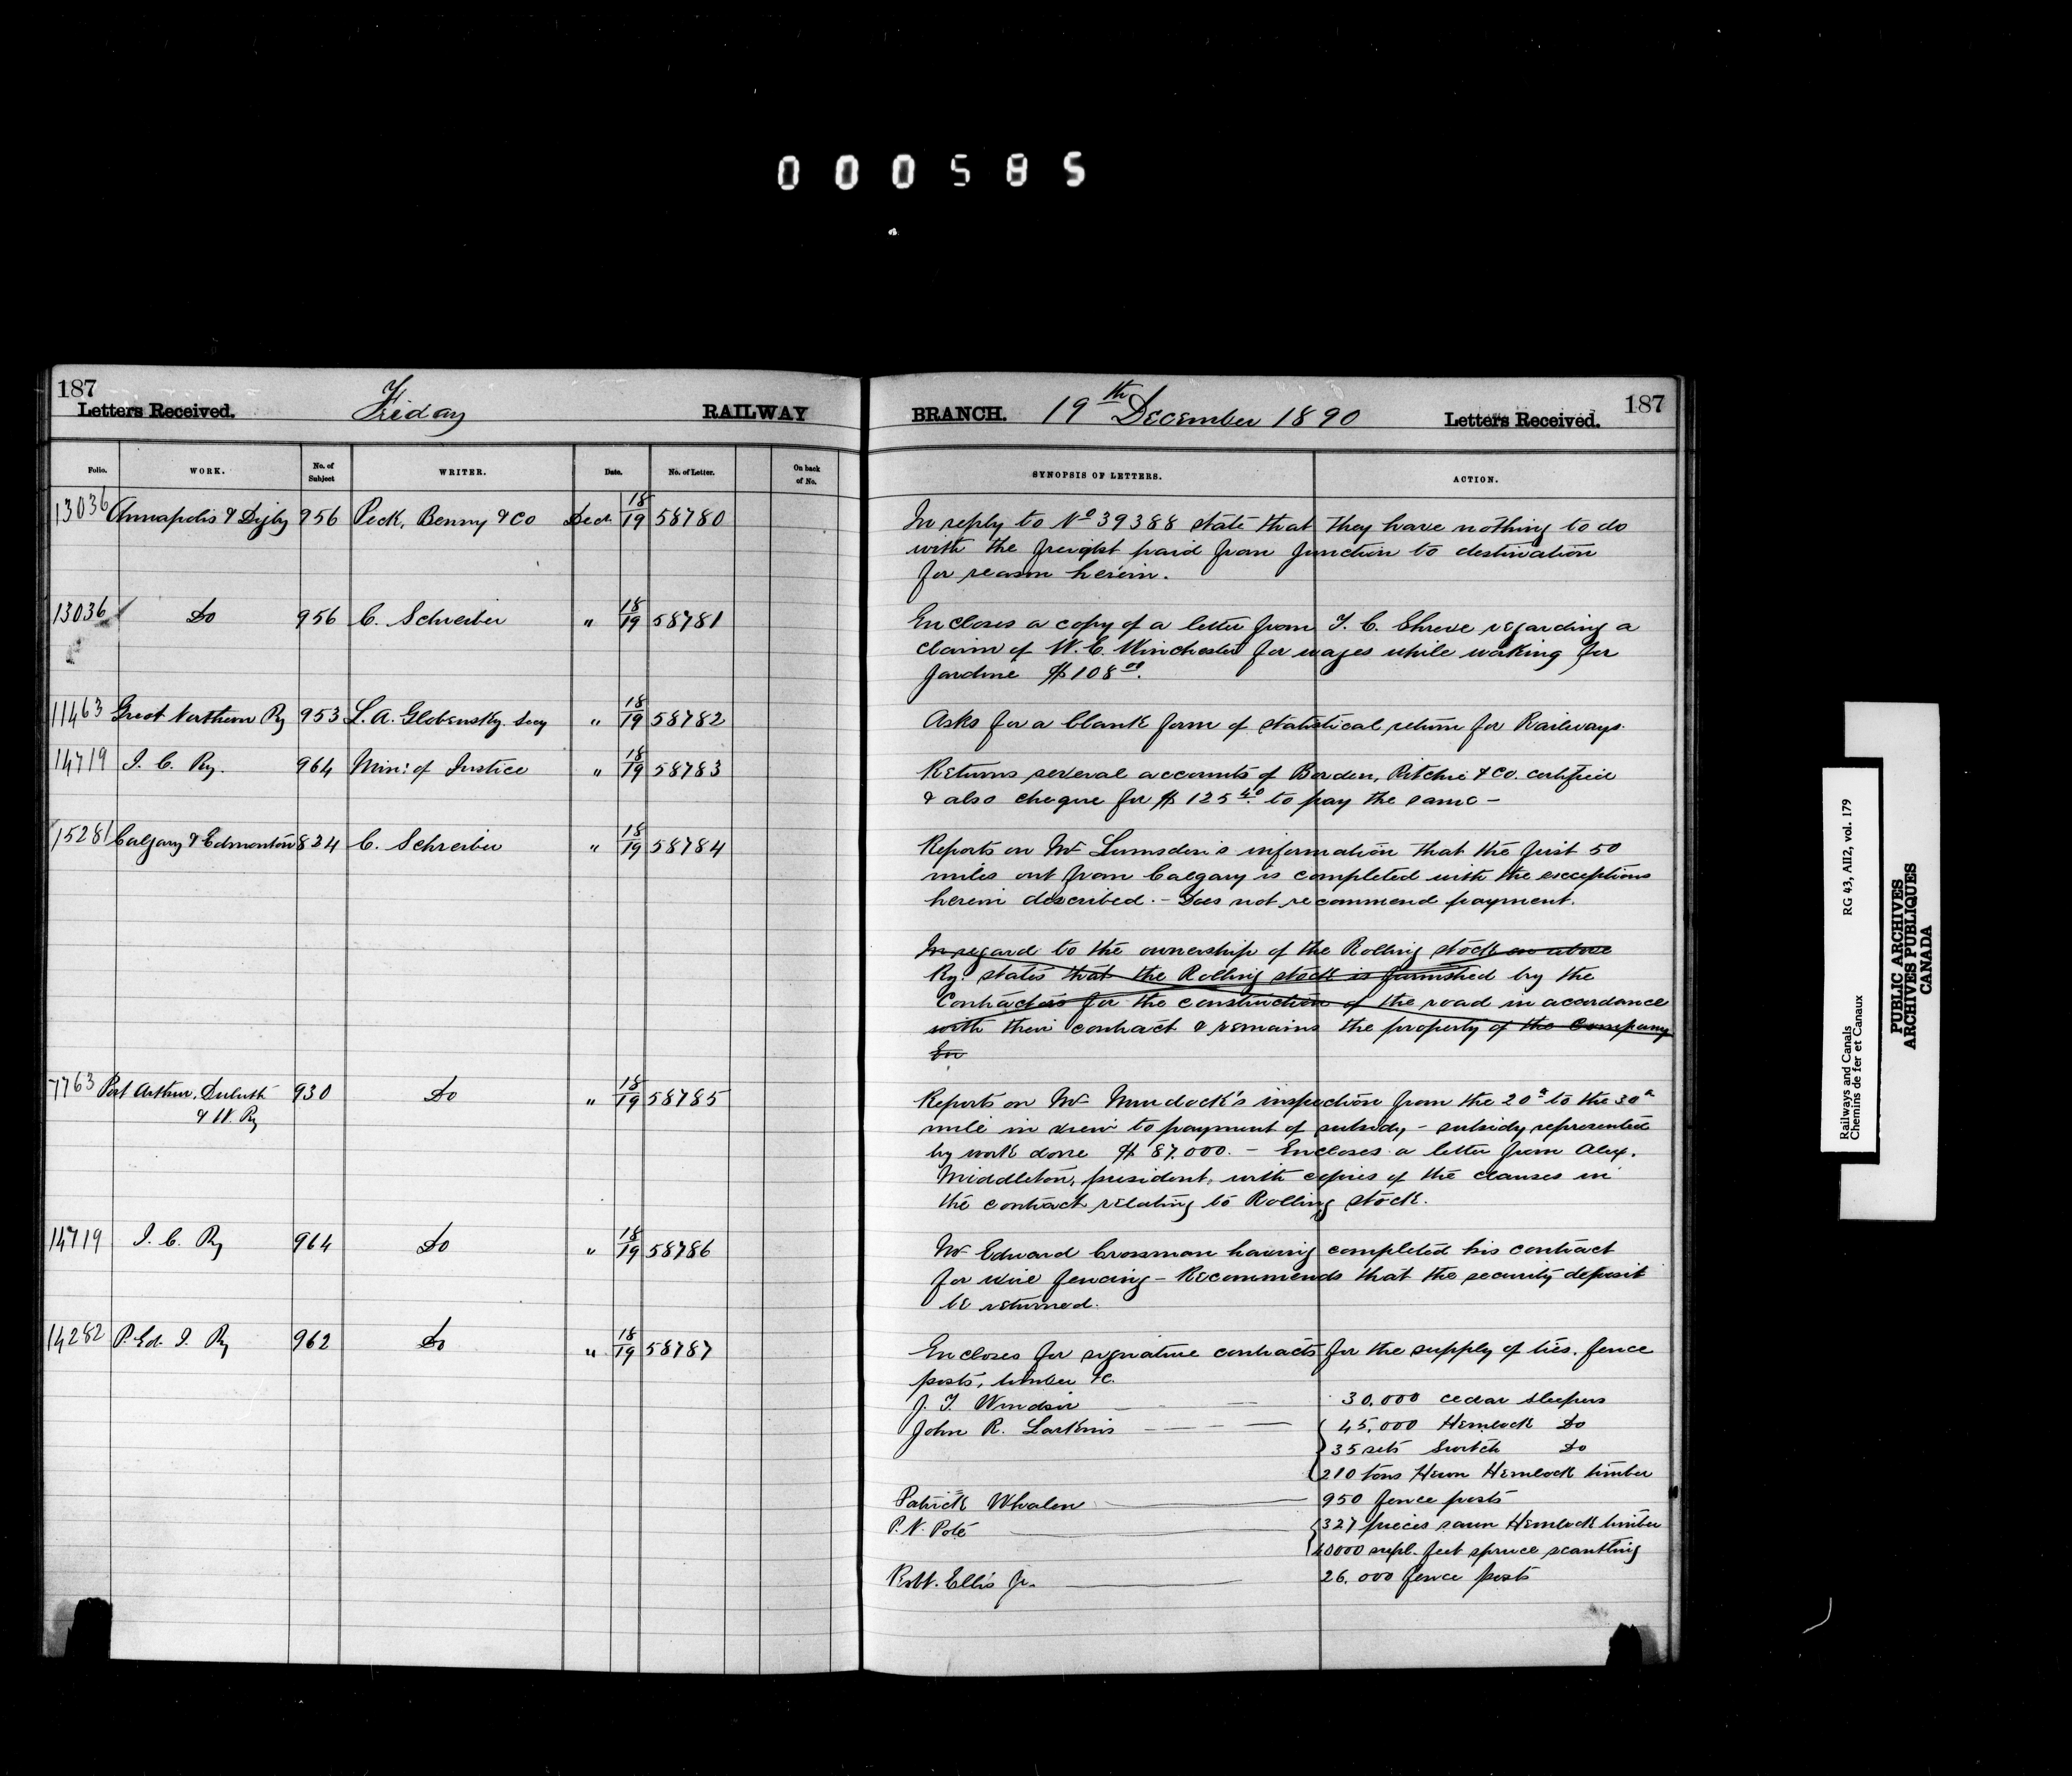 000585
187
Letters Received. Friday RAILWAY
BRANCH. 19th December 1890 Letters Received. 187
Folio. WORK. No. of Subject WRITER. Date. No. of Letter. On back of No.
SYNOPSIS OF LETTERS. ACTION.
13036 Annapolis & Digby 956 Peck, Benny & Co Decr. 18/19 58780
In reply to No 39388 state that they have nothing to do
with the freight paid from Junction to destination
for reason herein.
13036 Do 956 C. Schreiber " 18/19 58781
Encloses a copy of a letter from T. C. Shreve regarding a
claim of W. C. Winchester for wages while working for
Jardine $108 00.
11463 Great Northern Ry 953 L. A. Globensky. Secy " 18/19 58782
Asks for a blank form of statistical return for Railways.
14719 I. C. Ry. 964 Min: of Justice " 18/19 58783
Returns several accounts of Borden, Ritchie & Co. certified
& also cheque for $125 40. to pay the same -
15281 Calgary & Edmonton 834 C. Schreiber " 18/19 58784
Reports on Mr Lumsden's information that the first 50
miles out from Calgary is completed with the exceptions
herein described. - Does not recommend payment.
In regard to the ownership of the Rolling stock on above
Ry. states that the Rolling stock is furnished by the
Contractors for the construction of the road in accordance
with their contract & remains the property of the Company
En
7763 Port Arthur, Duluth & W. Ry 930 Do " 18/19 58785
Reports on Mr Murdock's inspection from the 20th to the 30th
mile in view to payment of subsidy - subsidy represented
by work done $87,000. - Encloses a letter from Alex.
Middleton, president, with copies of the clauses in
the contract relating to Rolling stock.
14719 I. C. Ry 964 Do " 18/19 58786
Mr Edward Crossman having completed his contract
for wire fencing - Recommends that the security deposit
be returned.
14282 P. Ed. I. Ry 962 Do " 18/19 58787
Encloses for signature contracts for the supply of ties, fence
posts, timber &c.
J. T. Windsir — — 30,000 cedar sleepers
John R. Larkins — — — 45,000 Hemlock Do
35 sets Switch Do
210 tons Hewn Hemlock timber
Patrick Whalen — 950 fence posts
P. N. Pate — 327 pieces sawn Hemlock timber
40000 supl. feet spruce scantling
Robt. Ellis Jr. — 26,000 fence posts
Railways and Canals RG 43, AII2, vol. 179
Chemins de fer et Canaux
PUBLIC ARCHIVES
ARCHIVES PUBLIQUES
CANADA